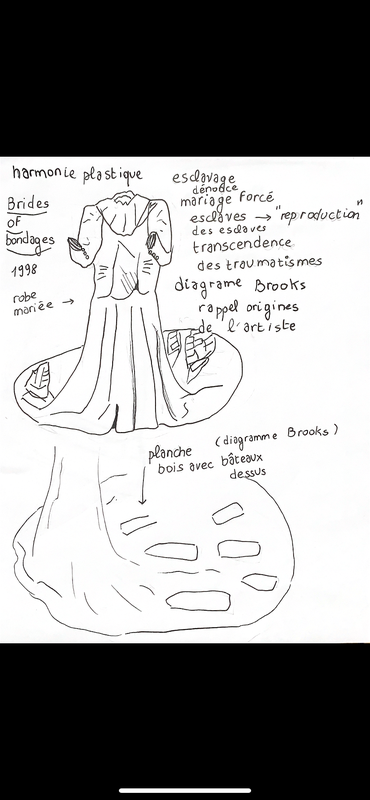 harmonie plastique
Brides
OF
bondages
1998
robe
mariée →
esclavage
dénonce
mariage forcé
esclaves → "reproduction"
des esclaves
transcendence
des traumatismes
diagrame Brooks
rappel origines
de l'artiste
(diagramme Brooks)
planche
bois avec bâteaux
dessus